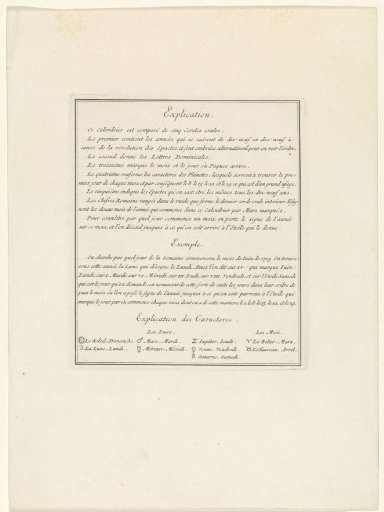 Explication.
Ce Calendrier est composé de cinq Cercles ovales.
Le premier contient les années qui se suivent de dix-neuf en dix-neuf à
cause de la révolution des Epactes, et sont ombrées alternativement pour en voir l'ordre.
Le second donne les Lettres Dominicales.
Le troisième marque le mois et le jour ou Paques arrive.
Le quatrième renferme les caracteres des Planetes, lesquels servent à trouver le pre-
mier jour de chaque mois, et par conséquent le 8 le 15 le 22 et le 29 ce qui est d'un grand usage.
Le cinquième indique les épactes qu'on sait être les mêmes tous les dix-neuf ans.
Les Chifres Romains rangés dans le vuide que forme le dernier cercle ovale intérieur désig-
nent les douze mois de l'année qui commence dans ce Calendrier par Mars marqué I.
Pour connoître par quel jour commence un mois, on porte le signe de l'année
sur ce mois, et l'on décend jusques à ce qu'on soit arrivé à l'Etoile qui le donne.
Exemple.
On cherche par quel jour de la Semaine commencera le mois de Juin de
sous cette année la Lune qui désigne le Lundi. Ainsi l'on dit sur IV qui marque Juin
Lundi, sur V. Mardi, sur VI. Mécredi, sur VII. Jeudi, sur VIII. Vendredi, et sur l'Etoile Samedi
qui est le jour qu'on demande, en nommant de cette sorte de suite les jours dans leur ordre de-
puis le mois ou l'on a posé le signe de l'année, jusques à ce qu'on soit parvenu à l'Etoile qui
marque le jour par où commence chaque mois dont on a de cette maniere le 1. le 8. le 15. le 22. et le 29.
Explication des Caracteres.
Les Jours. Les Mois.
☉ Le Soleil, Dimanche. ♂ Mars, Mardi. ♃ Jupiter, Jeudi. ♈ Le Bélier, Mars.
☽ La Lune, Lundi. ☿ Mercure, Mécredi. ♀ Venus, Vendredi. ♉ Le Taureau, Avril.
♄ Saturne, Samedi.